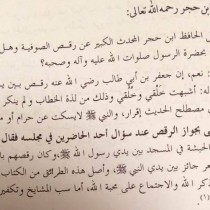 بن حجر رحمه الله تعالى:
الحافظ ابن حجر المحدث الكبير عن رقص الصوفية وهل
بحضرة الرسول صلوات الله عليه وآله وصحبه؟
: نعم، إن جعفر بن أبي طالب رضي الله عنه رقص
له: أشبهت خَلْقي وخُلُقي وذلك من لذة الخطاب ولم ينكر
مصطلح الحديث إقرار، والنبي ﷺ لا يسكت عن حرام أو
بجواز الرقص عند سؤال أحد الحاضرين في مجلسه فقال
الحبشة في المسجد بين يدي رسول الله ﷺ، وكان رقصهم
جائز بين يدي النبي ﷺ، وأصل هذه الطرائق من الكتاب
ذكر الله والاجتماع على محبة الله، أما سب المشايخ وتكفير